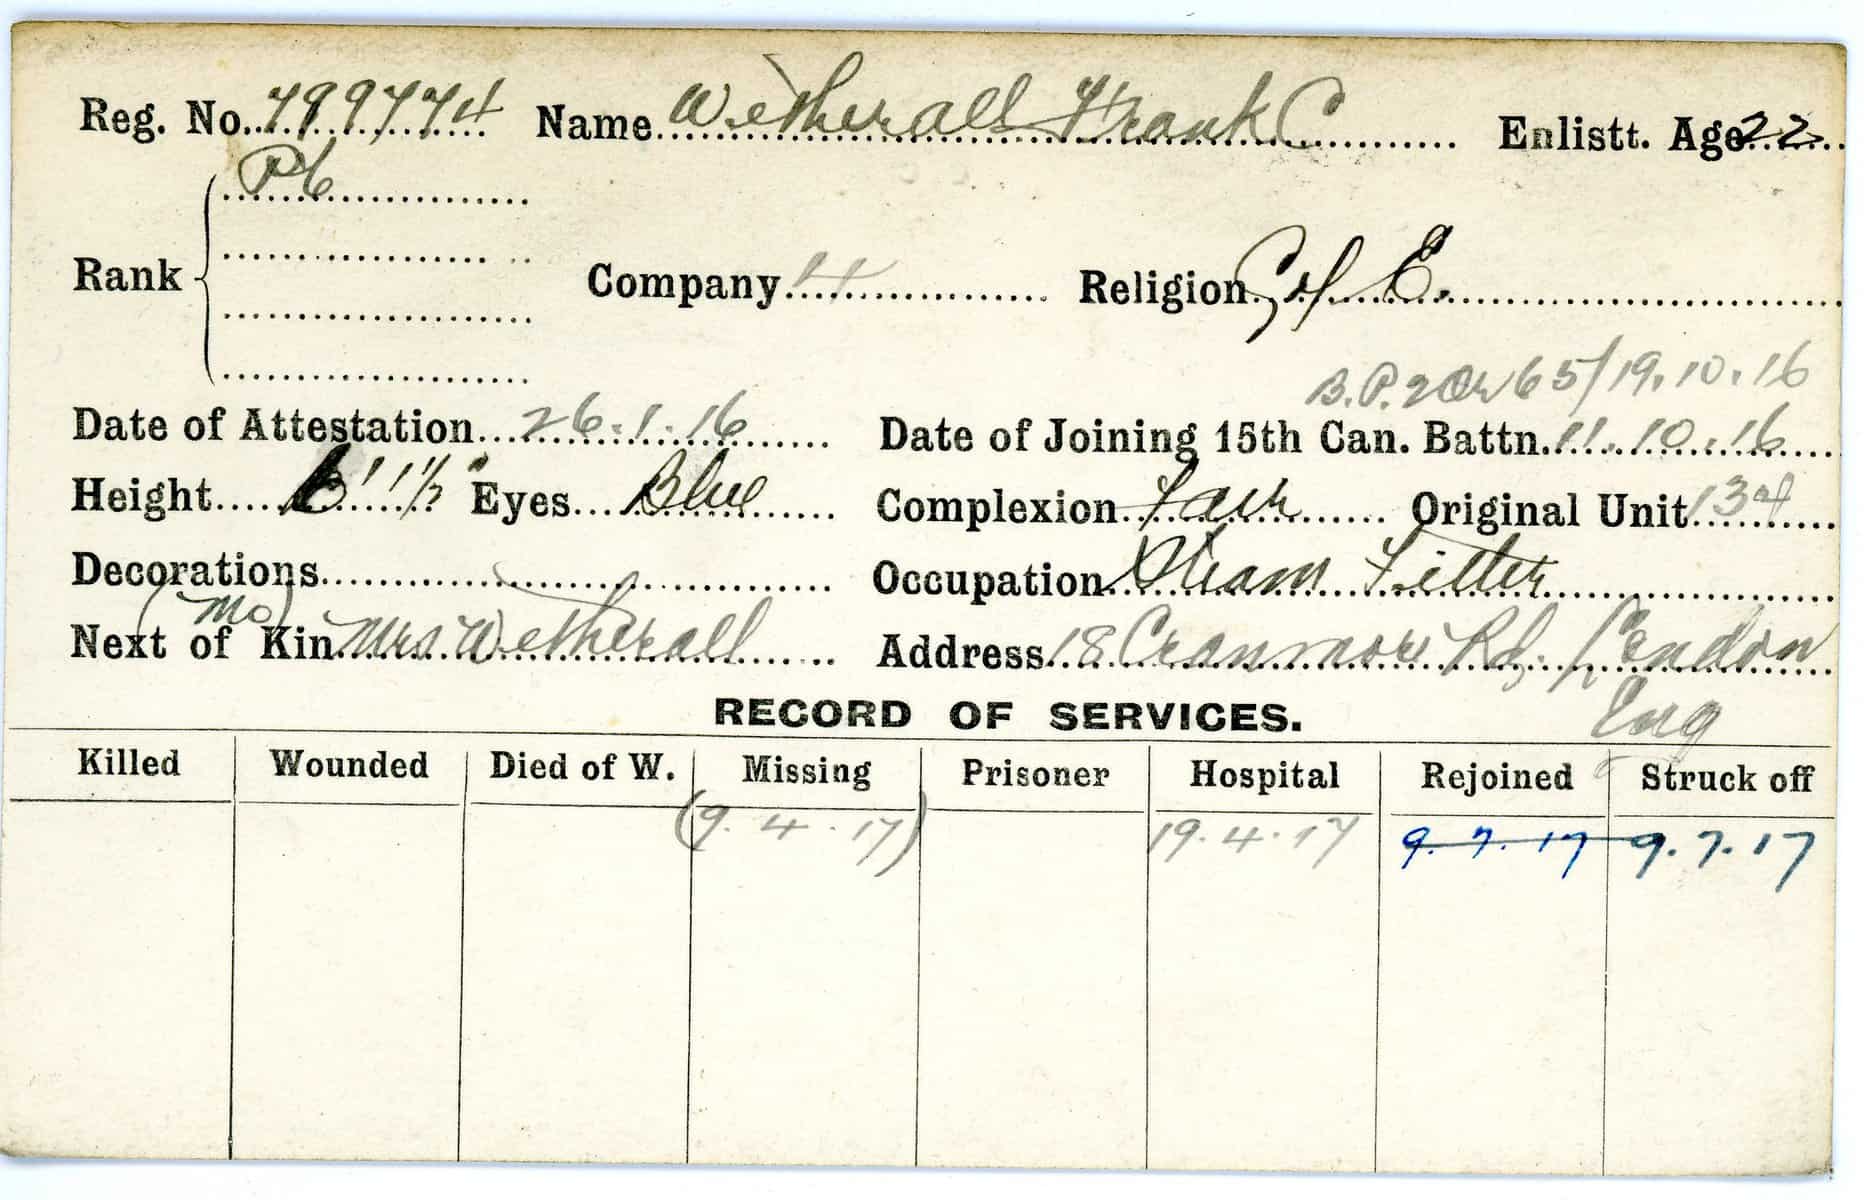 Reg. No. 799774 Name Wetherall Frank C Enlistt. Age 22
Pte
Rank Company 4 Religion C of E.
B.P. 2 Or 65/19.10.16
Date of Attestation 26.1.16 Date of Joining 15th Can. Battn. 11.10.16
Height 1½" Eyes Blue Complexion Fair Original Unit 134
Decorations Occupation Steam Fitter
(Mo)
Next of Kin Mrs Wetherall Address 18 Cranmore Rd. London
Eng
RECORD OF SERVICES.
Killed Wounded Died of W. Missing Prisoner Hospital Rejoined Struck off
(9.4.17) 19.4.17 9.7.17 9.7.17